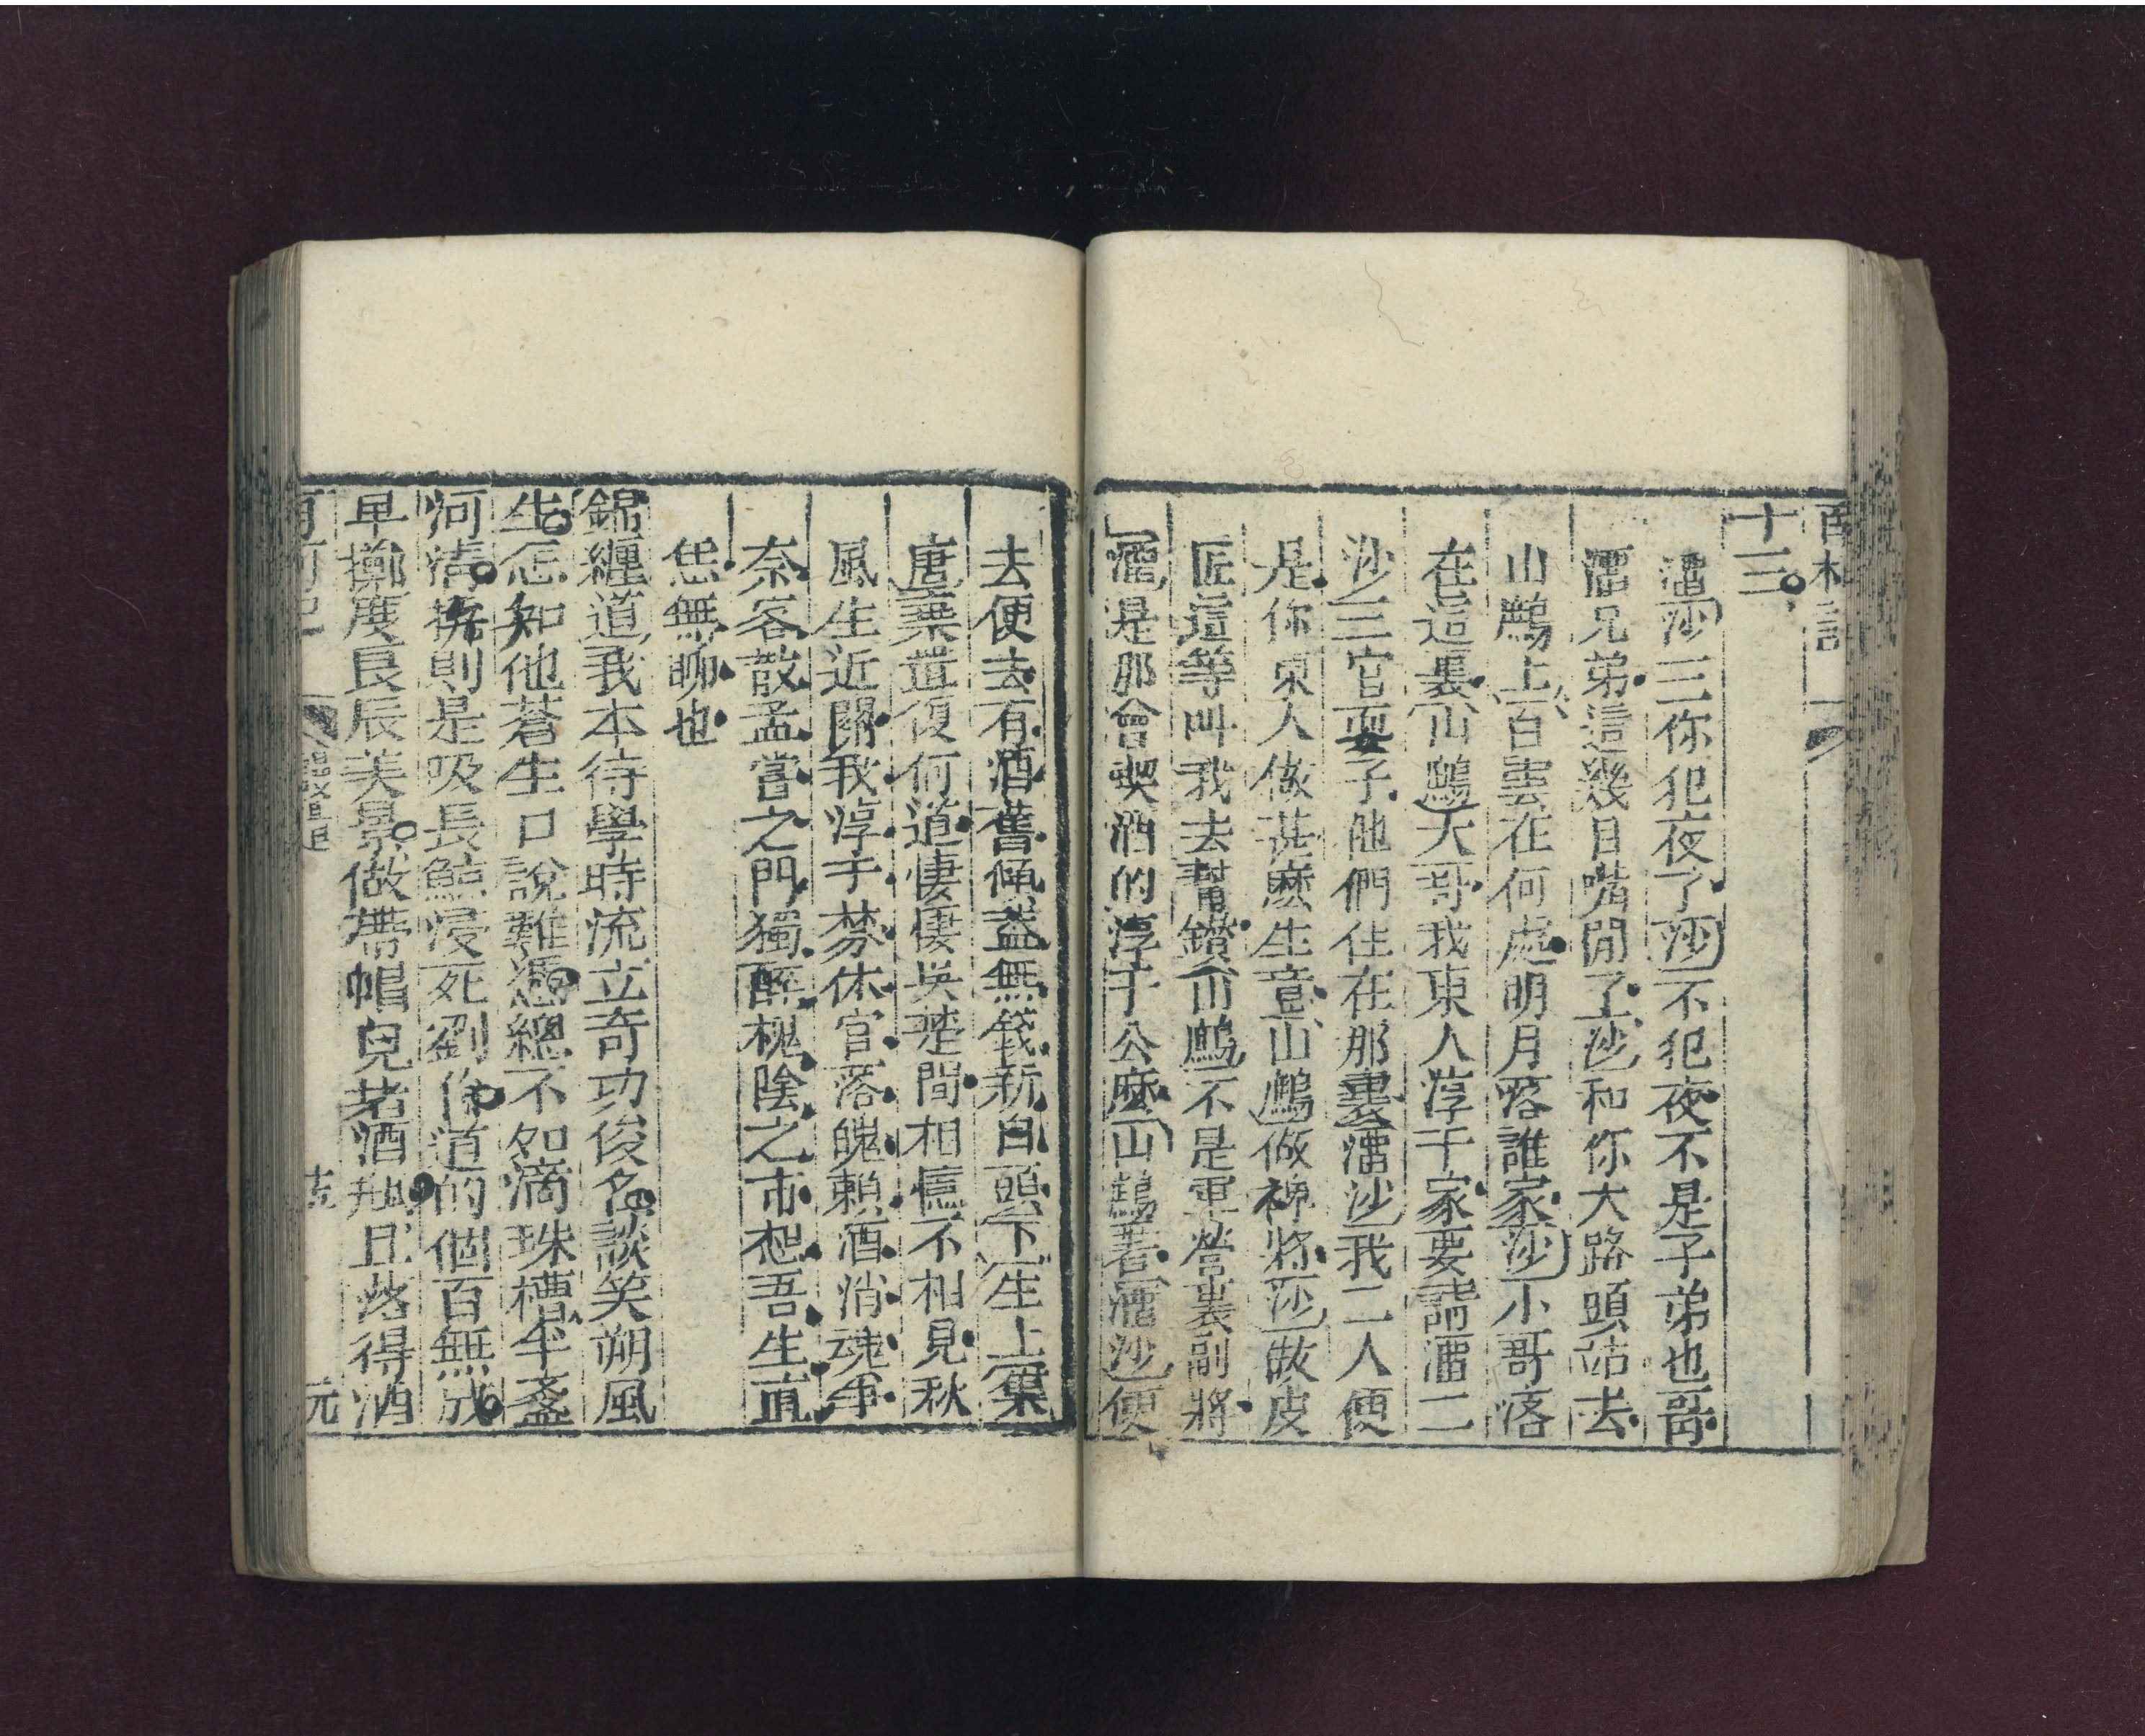 十三
溜沙三你犯夜了沙不犯夜不是子弟也哥
溜兄弟這幾日嘴閒了沙和你大路頭站去
山鷓上白雲在何處明月落誰家沙小哥落
在這裏山鷓大哥我東人淳于家要請溜二
沙三官耍子他們住在那裏溜沙我二人便
是你東人做甚麽生意山鷓做裨將沙做皮
匠這等叫我去幫鑽山鷓不是軍營裏副將
溜是那會喫酒的淳于公麽山鷓著溜沙便
去便去有酒舊傾蓋無錢新白頭下生上集
唐粟豈復何道悽悽吳楚間相憶不相見秋
風生近關我淳于棼休官落魄賴酒消魂爭
奈客散孟嘗之門獨醉槐陰之市想吾生直
恁無聊也
錦纏道我本待學時流立奇功俊名談笑朔風
生怎知他蒼生口說難憑總不如滴珠槽半盞
河清挤則是吸長鯨浸死劉伶道的個百無成
早擲度良辰美景做帶帽兒著酒瓶且落得酒